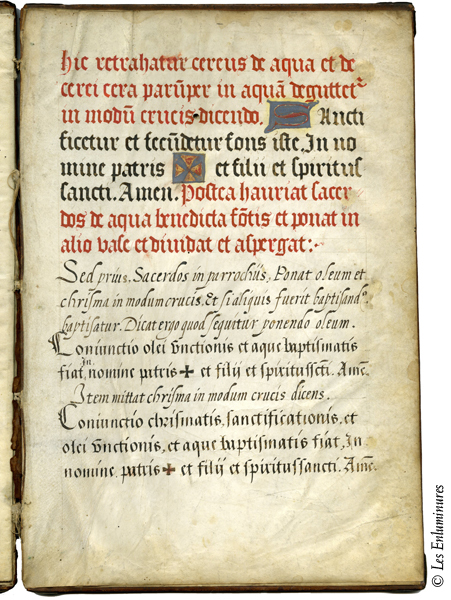 hic retrahatur cereus de aqua et de
cerei cera parũper in aquã deguttet᷑
in modũ crucis dicendo. Sancti
ficetur et fecũdetur fons iste. In no
mine patris ✠ et filii et spiritus
sancti. Amen. Postea hauriat sacer
dos de aqua benedicta fõtis et ponat in
alio vase et diuidat et aspergat:·
Sed prius. Sacerdos in parrochiis, Ponat oleum et
chrisma in modum crucis, et si aliquis fuerit baptisand⁹.
baptisatur. Dicat ergo quod sequitur ponendo oleum.
Coniunctio olei vnctionis et aque baptismatis
fiat, In nomine patris ✠ et filij et spiritus scti. Amẽ.
Item mittat chrisma in modum crucis dicens.
Coniunctio chrismatis, sanctificationis, et
olei vnctionis, et aque baptismatis fiat, In
nomine patris ✠ et filij et spiritus sancti. Amẽ.
© Les Enluminures